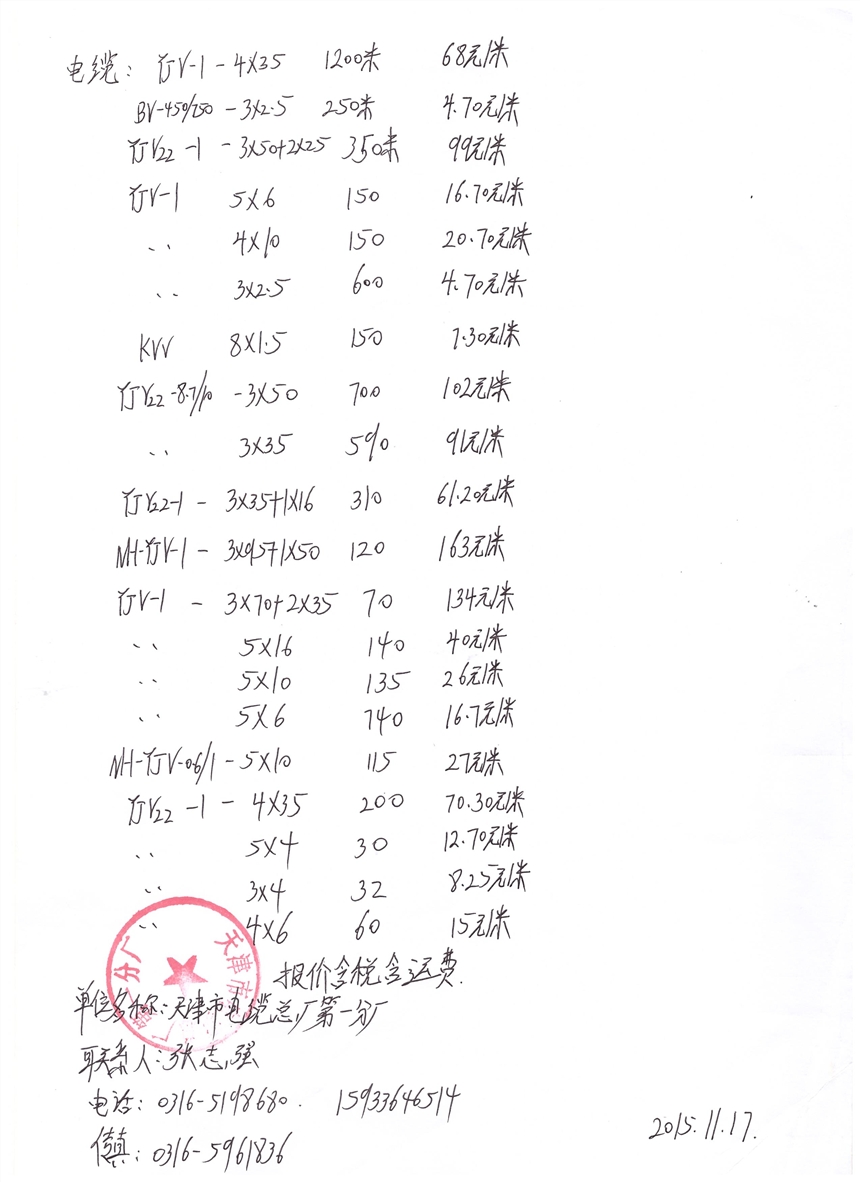 电缆: YJV-1-4X35 1200米 68元/米
BV-450/750-3X2.5 250米 4.70元/米
YJV22-1-3X50+2X25 350米 99元/米
YJV-1 5X6 150 16.70元/米
、、 4X10 150 20.70元/米
、、 3X2.5 600 4.70元/米
KVV 8X1.5 150 7.30元/米
YJV22-8.7/10-3X50 700 102元/米
、、 3X35 590 91元/米
YJV22-1-3X35+1X16 310 61.20元/米
NH-YJV-1-3X95+1X50 120 163元/米
YJV-1-3X70+2X35 70 134元/米
、、 5X16 140 40元/米
、、 5X10 135 26元/米
、、 5X6 740 16.7元/米
NH-YJV-0.6/1-5X10 115 27元/米
YJV22-1-4X35 200 70.30元/米
、、 5X4 30 12.70元/米
、、 3X4 32 8.25元/米
、、 4X6 60 15元/米
报价含税含运费.
单位名称:天津市电缆总厂第一分厂
联系人:张志强
电话:0316-5198680. 15933646514
传真:0316-5961836
2015.11.17.